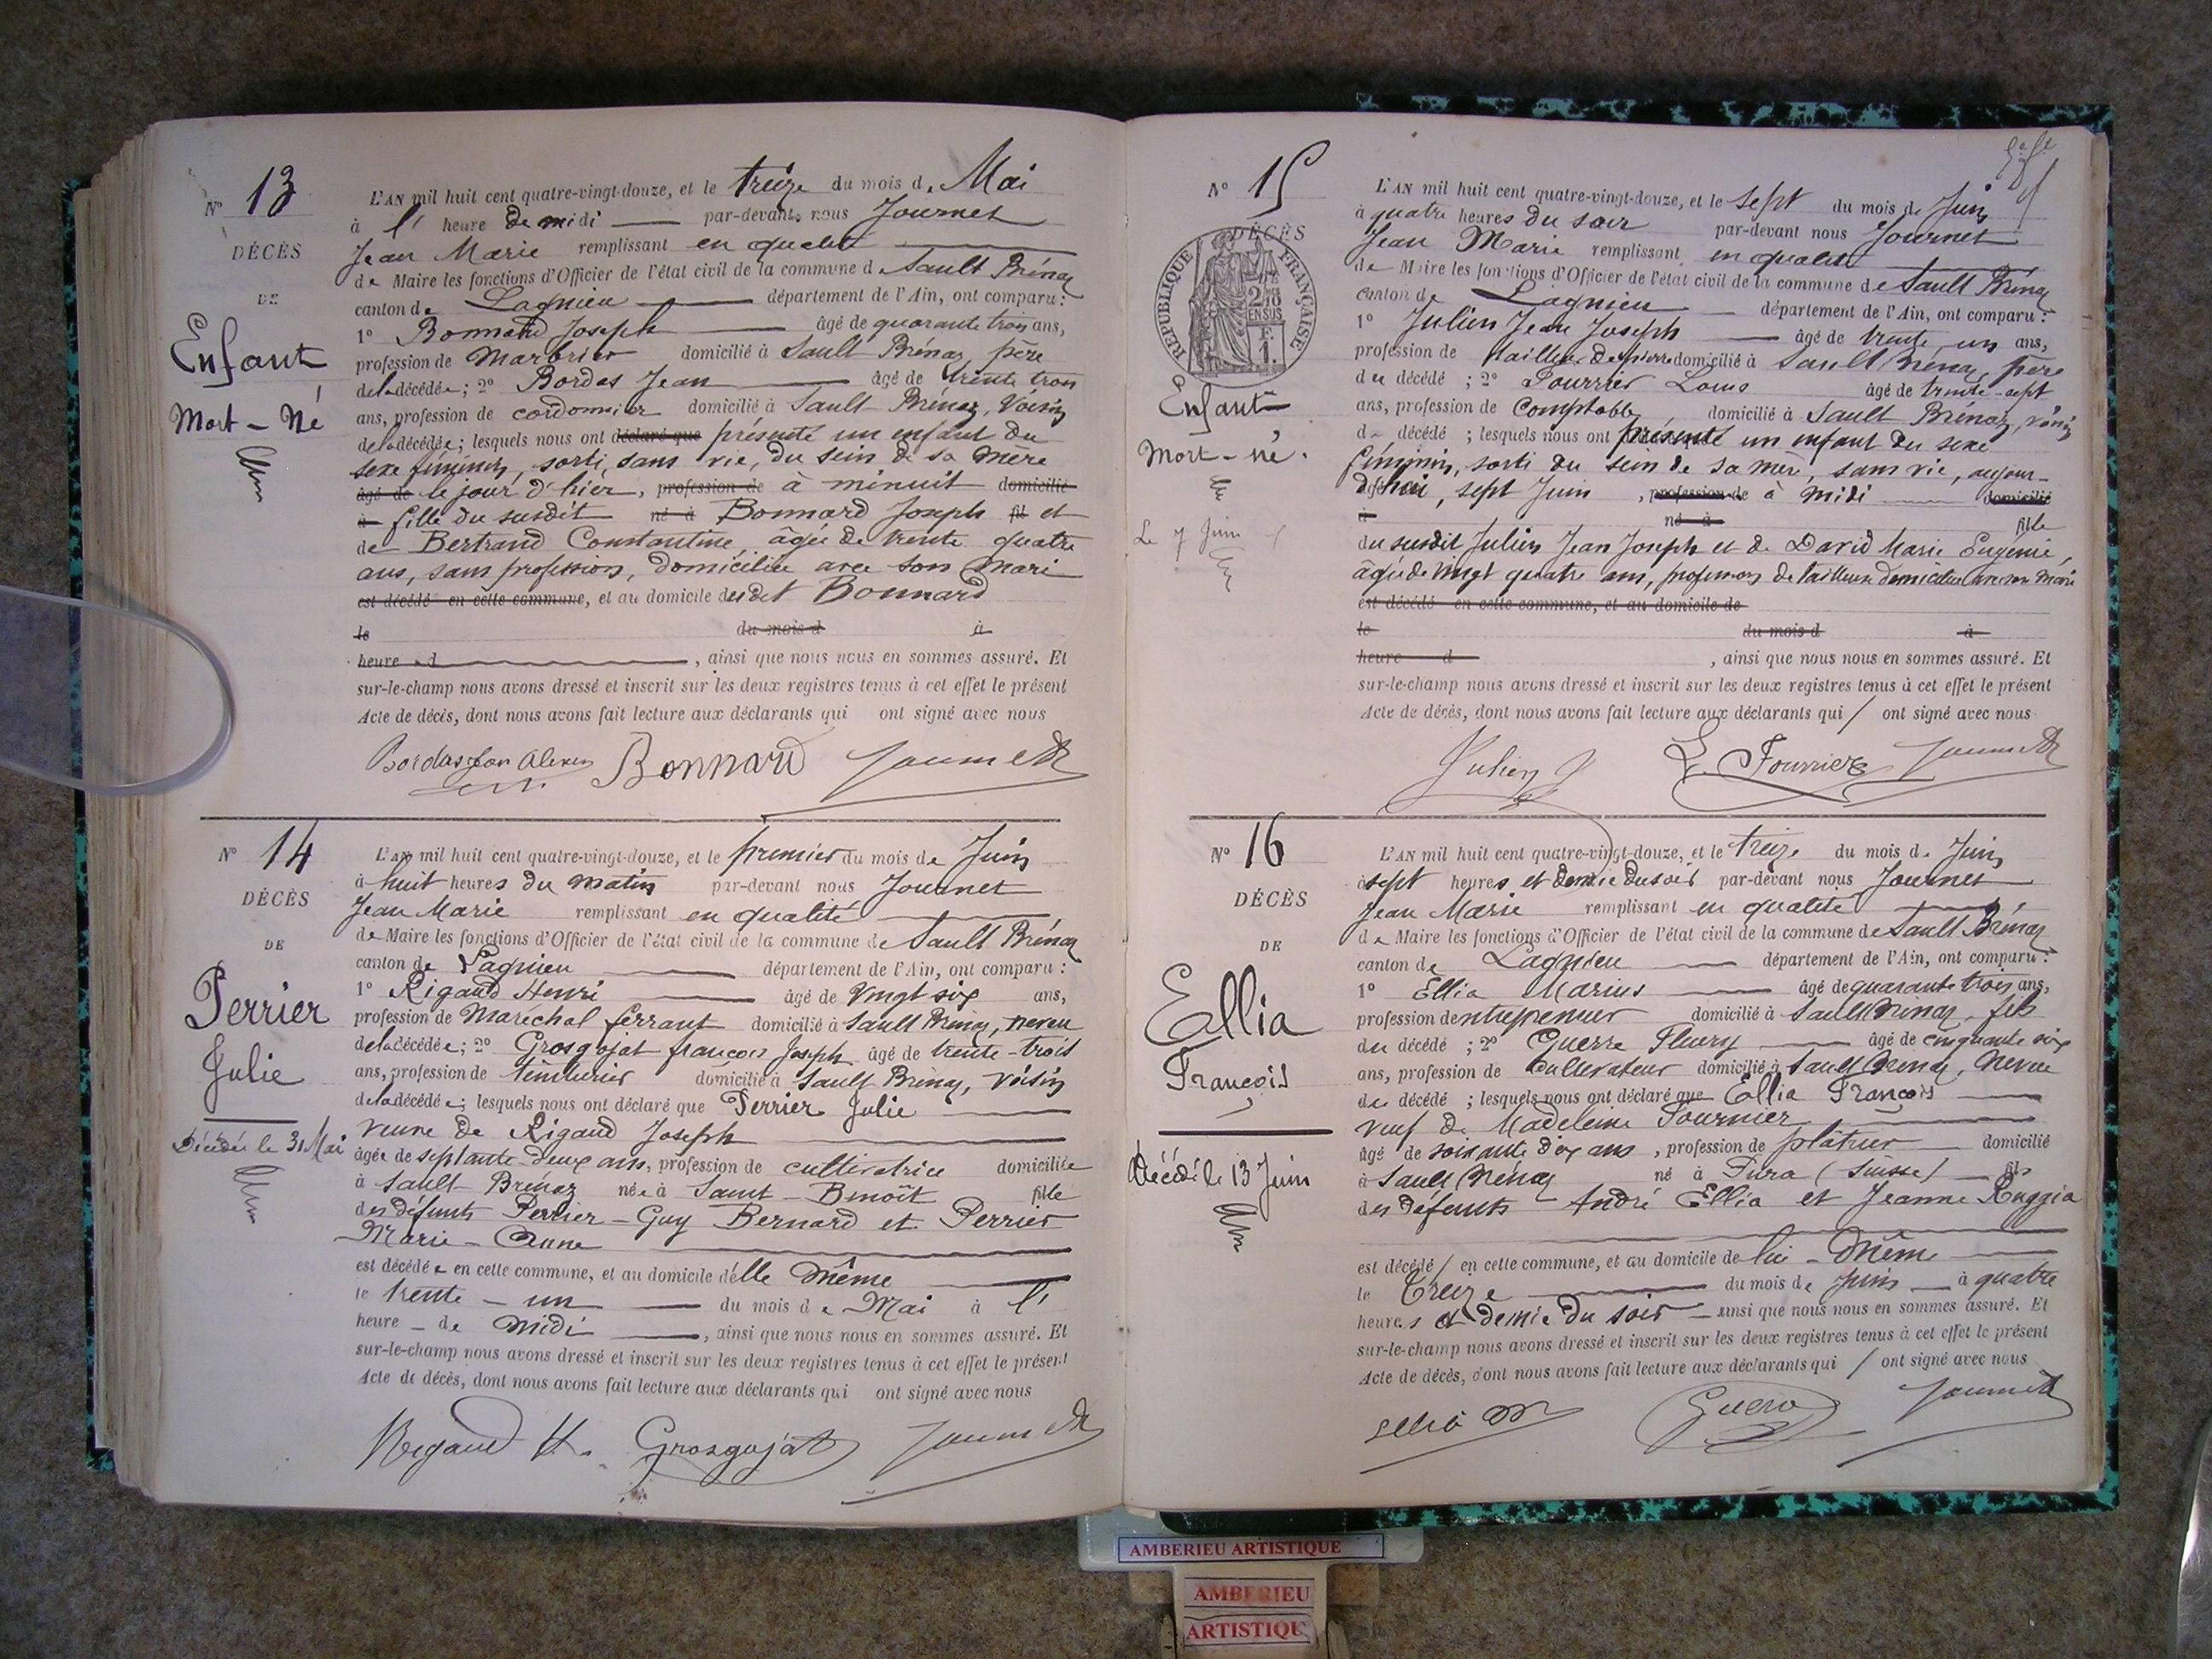 N° 13
DÉCÈS
DE
Enfant
Mort - Né
L'AN mil huit cent quatre-vingt-douze, et le treize du mois de Mai
à l' heure de midi par-devant nous Journet
Jean Marie remplissant en qualité
de Maire les fonctions d'Officier de l'état civil de la commune de Sault Brénaz
canton de Lagnieu département de l'Ain, ont comparu :
1° Bonnard Joseph âgé de quarante trois ans,
profession de Marbrier domicilié à Sault Brénaz, père
de la décédée ; 2° Bordas Jean âgé de trente trois
ans, profession de cordonnier domicilié à Sault Brénaz, Voisin
de la décédée ; lesquels nous ont déclaré que présenté un enfant du
sexe féminin, sorti, sans vie, du sein de sa mère
âgé de le jour d'hier, profession de à minuit domicilié
à fille du susdit né à Bonnard Joseph fil et
de Bertrand Constantine âgée de trente quatre
ans, sans profession, domiciliée avec son Mari
est décédé en cette commune, et au domicile dudit Bonnard
le du mois d à
heure d , ainsi que nous nous en sommes assuré. Et
sur-le-champ nous avons dressé et inscrit sur les deux registres tenus à cet effet le présent
Acte de décès, dont nous avons fait lecture aux déclarants qui ont signé avec nous
Bordas Jean Bonnard Journet
N° 14
DÉCÈS
DE
Perrier
Julie
Décédée le 31 Mai
L'AN mil huit cent quatre-vingt-douze, et le premier du mois de Juin
à huit heures du matin par-devant nous Journet
Jean Marie remplissant en qualité
de Maire les fonctions d'Officier de l'état civil de la commune de Sault Brénaz
canton de Lagnieu département de l'Ain, ont comparu :
1° Rigaud Henri âgé de Vingt six ans,
profession de Maréchal ferrant domicilié à Sault Brénaz, neveu
de la décédée ; 2° Grosgojat françois Joseph âgé de trente-trois
ans, profession de teinturier domicilié à Sault Brénaz, voisin
de la décédée ; lesquels nous ont déclaré que Perrier Julie
veuve de Rigaud Joseph
âgée de septante-deux ans, profession de cultivatrice domiciliée
à Sault Brénaz née à Saint-Benoît fille
des défunts Perrier-Guy Bernard et Perrier
Marie-Anne
est décédée en cette commune, et au domicile d'elle même
le trente-un du mois de Mai à l'
heure de Midi , ainsi que nous nous en sommes assuré. Et
sur-le-champ nous avons dressé et inscrit sur les deux registres tenus à cet effet le présent
Acte de décès, dont nous avons fait lecture aux déclarants qui ont signé avec nous
Rigaud H. Grosgojat Journet
N° 15
DÉCÈS
RÉPUBLIQUE FRANÇAISE
2/10
EN SUS
F.
1.
Enfant
Mort-né.
Le 7 Juin
L'AN mil huit cent quatre-vingt-douze, et le sept du mois de Juin
à quatre heures du soir par-devant nous Journet
Jean Marie remplissant en qualité
de Maire les fonctions d'Officier de l'état civil de la commune de Sault Brénaz
canton de Lagnieu département de l'Ain, ont comparu :
1° Julien Jean Joseph âgé de trente un ans,
profession de tailleur de pierre domicilié à Sault Brénaz, père
du décédé ; 2° Fourrier Louis âgé de trente-sept
ans, profession de Comptable, domicilié à Sault Brénaz, voisin
d décédé ; lesquels nous ont présenté un enfant du sexe
féminin, sorti du sein de sa mère, sans vie, aujour-
d'hui, sept Juin, profession de à midi domicilié
à né à fille
du susdit Julien Jean Joseph et de David Marie Eugénie,
âgée de vingt quatre ans, profession de tailleuse domiciliée avec son Mari
est décédé en cette commune, et au domicile de
le du mois d à
heure d , ainsi que nous nous en sommes assuré. Et
sur-le-champ nous avons dressé et inscrit sur les deux registres tenus à cet effet le présent
Acte de décès, dont nous avons fait lecture aux déclarants qui / ont signé avec nous
Julien J L. Fourrier Journet
N° 16
DÉCÈS
DE
Ellia
François
Décédé le 13 Juin
L'AN mil huit cent quatre-vingt-douze, et le treize du mois de Juin
à sept heures et demie du soir par-devant nous Journet
Jean Marie remplissant en qualité
de Maire les fonctions d'Officier de l'état civil de la commune de Sault Brénaz
canton de Lagnieu département de l'Ain, ont comparu :
1° Ellia Marius âgé de quarante trois ans,
profession d'entrepreneur domicilié à Sault Brénaz, fils
du décédé ; 2° Guerre Fleury âgé de cinquante six
ans, profession de Cultivateur domicilié à Sault Brénaz, Neveu
du décédé ; lesquels nous ont déclaré que Ellia François
veuf de Madeleine Fournier
âgé de soixante dix ans, profession de plâtrier domicilié
à Sault Brénaz né à Pura (Suisse) fils
des défunts André Ellia et Jeanne Ruggia
est décédé / en cette commune, et au domicile de lui-Même
le Treize du mois de Juin à quatre
heures et demie du soir ainsi que nous nous en sommes assuré. Et
sur-le-champ nous avons dressé et inscrit sur les deux registres tenus à cet effet le présent
Acte de décès, dont nous avons fait lecture aux déclarants qui / ont signé avec nous
Ellia M Guerre Journet
AMBERIEU ARTISTIQUE
AMBERIEU
ARTISTIQUE